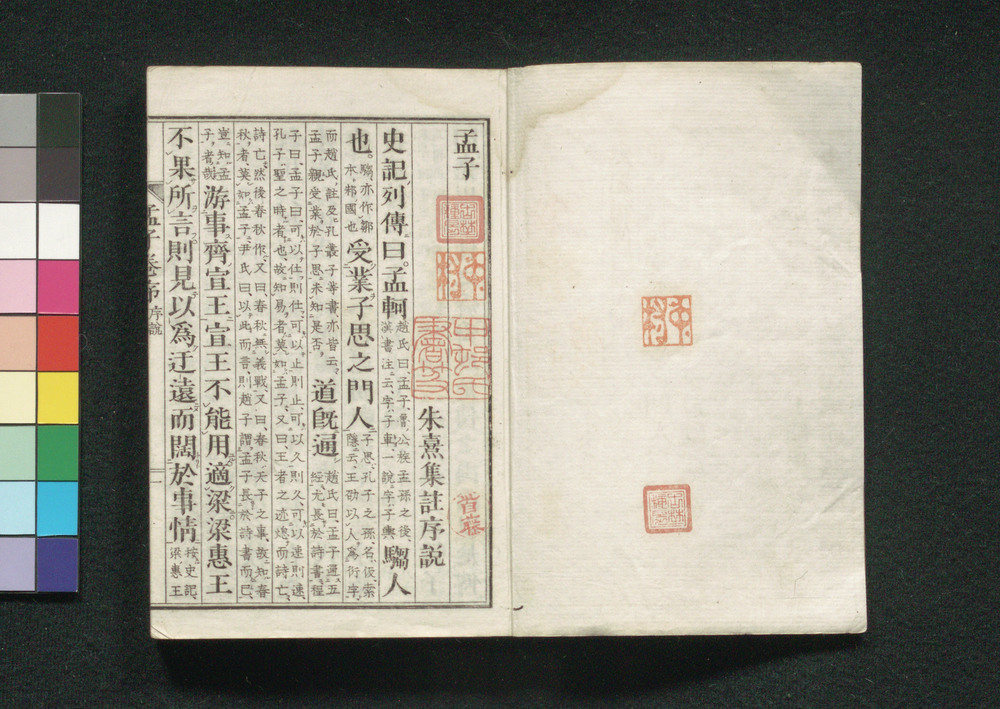 孟子
朱熹集註序説
史記列傳曰孟軻趙氏曰孟子魯公族孟孫之後漢書注云字子車一說字子輿騶人
也騶亦作鄒本邾國也受業子思之門人子思孔子之孫名伋索隱云王劭以人爲衍字
而趙氏註及孔叢子等書亦皆云孟子親受業於子思未知是否道旣通趙氏曰孟子通五經尤長於詩書程
子曰孟子曰可以仕則仕可以止則止可以久則久可以速則速孔子聖之時者也故知易者莫如孟子又曰王者之迹熄而詩亡
詩亡然後春秋作又曰春秋無義戰又曰春秋天子之事故知春秋者莫如孟子尹氏曰以此而言則趙子謂孟子長於詩書而已
豈知孟子者哉游事齊宣王宣王不能用適梁梁惠王
不果所言則見以爲迂遠而闊於事情按史記梁惠王
孟子卷 序說